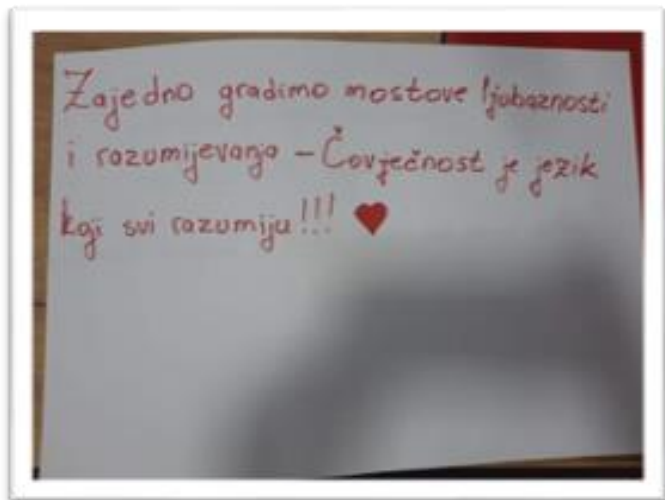 Zajedno gradimo mostove ljubaznosti
i razumijevanja – Čovječnost je jezik
koji svi razumiju!!! ♥